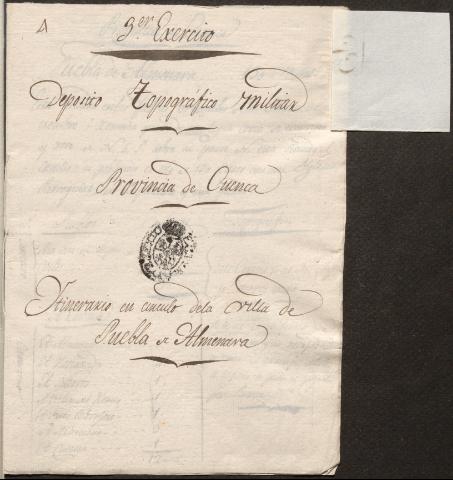 A
3.er Exercito
Deposito Topográfico militar
Provincia de Cuenca
Itinerario en circulo dela Villa de
Puebla de Almenara